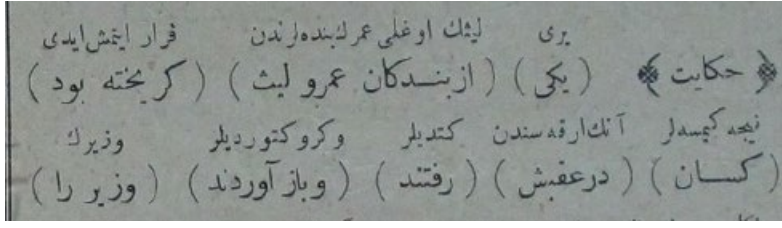 بری لیثك اوغلی عمرك بنده لرندن فرار ایتمش ایدی
﴿ حكایت ﴾ ( یكی ) ( از بنـــدكان عمرو لیث ) ( كریخته بود )
نیجه كیمسه لر آنك ارقه سندن كتدیلر و كرو كتوردیلر وزیرك
( كســان ) ( درعقبش ) ( رفتند ) ( وباز آوردند ) ( وزیر را )